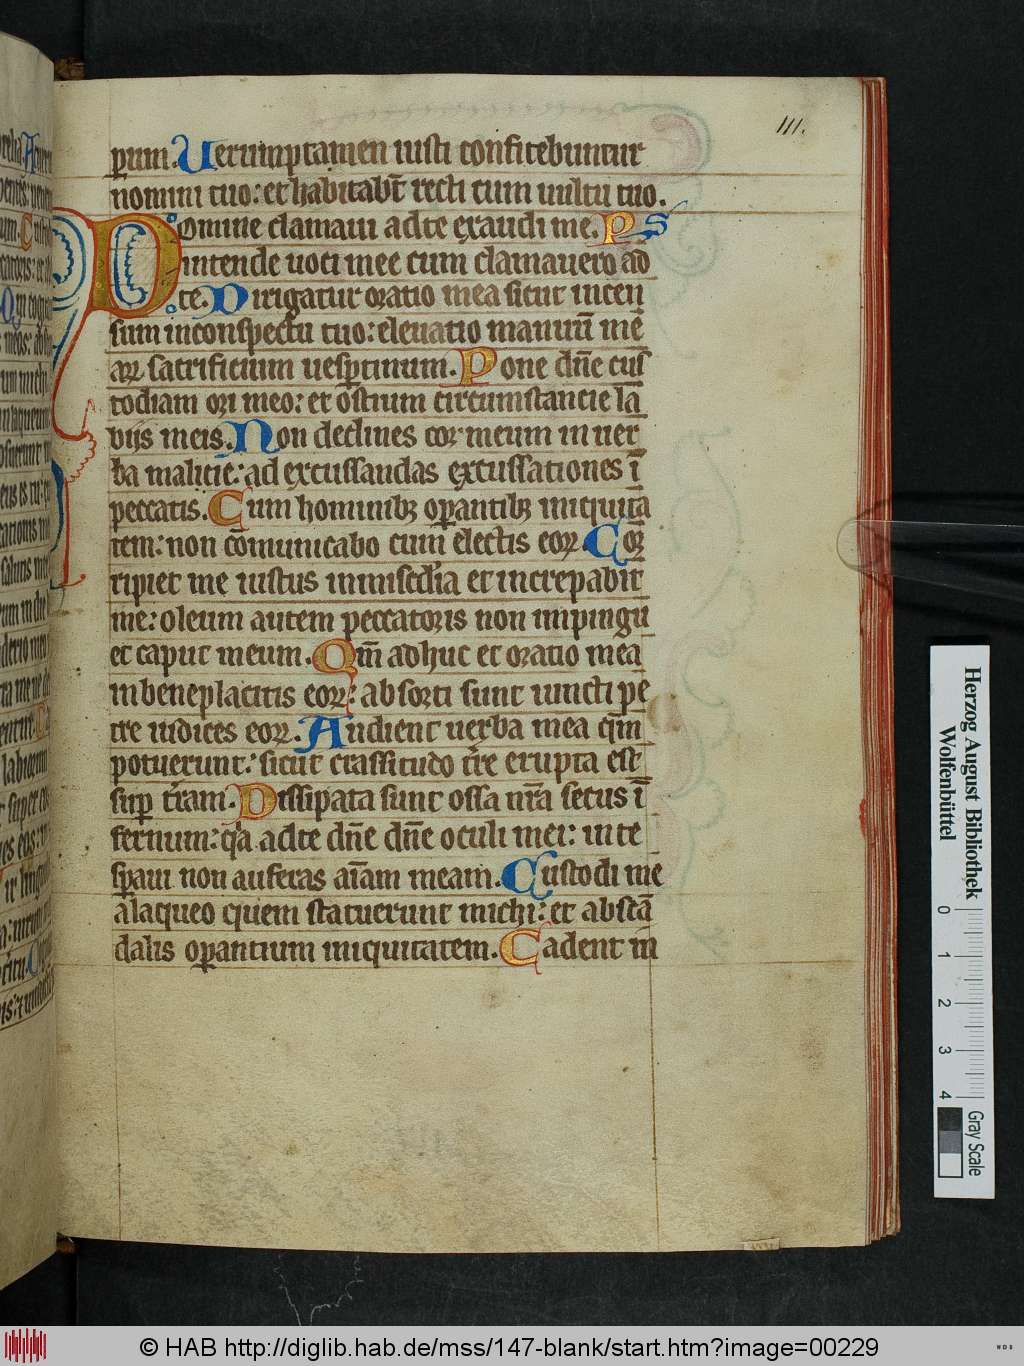 111.
pum. Uerumptamen iusti confitebuntur
nomini tuo: et habitabt̄ recti cum uultu tuo.
Domine clamaui ad te exaudi me. PS
intende uoci mee cum clamauero ad
te. Dirigatur oratio mea sicut incen
sum in conspectu tuo: eleuatio manuū me
aꝝ sacrificium uesꝑtinum. Pone dn̄e cus
todiam ori meo: et ostium circumstancie la
biis meis. Non declines cor meum in uer
ba malicie: ad excussandas excussationes ī
peccatis. Cum hominibꝫ oꝑantibꝫ iniquita
tem: non cōmunicabo cum electis eoꝝ. Cor
ripiet me iustus in misc̄dia et increpabit
me: oleum autem peccatoris non impingu
et caput meum. Qm̄ adhuc et oratio mea
in beneplacitis eoꝝ: absorti sunt iuncti pe
tre iudices eoꝝ. Audient uerba mea qm̄
potuerunt: sicut crassitudo tr̄e erupta est
suꝑ tr̄am. Dissipata sunt ossa nr̄a secus ī
fernum: qa ad te dn̄e dn̄e oculi mei: in te
sꝑaui non auferas aīam meam. Custodi me
a laqueo quem statuerunt michi: et ab scā
dalis oꝑantium iniquitatem. Cadent in
Herzog August Bibliothek
Wolfenbüttel
0 1 2 3 4
Gray Scale
© HAB http://diglib.hab.de/mss/147-blank/start.htm?image=00229